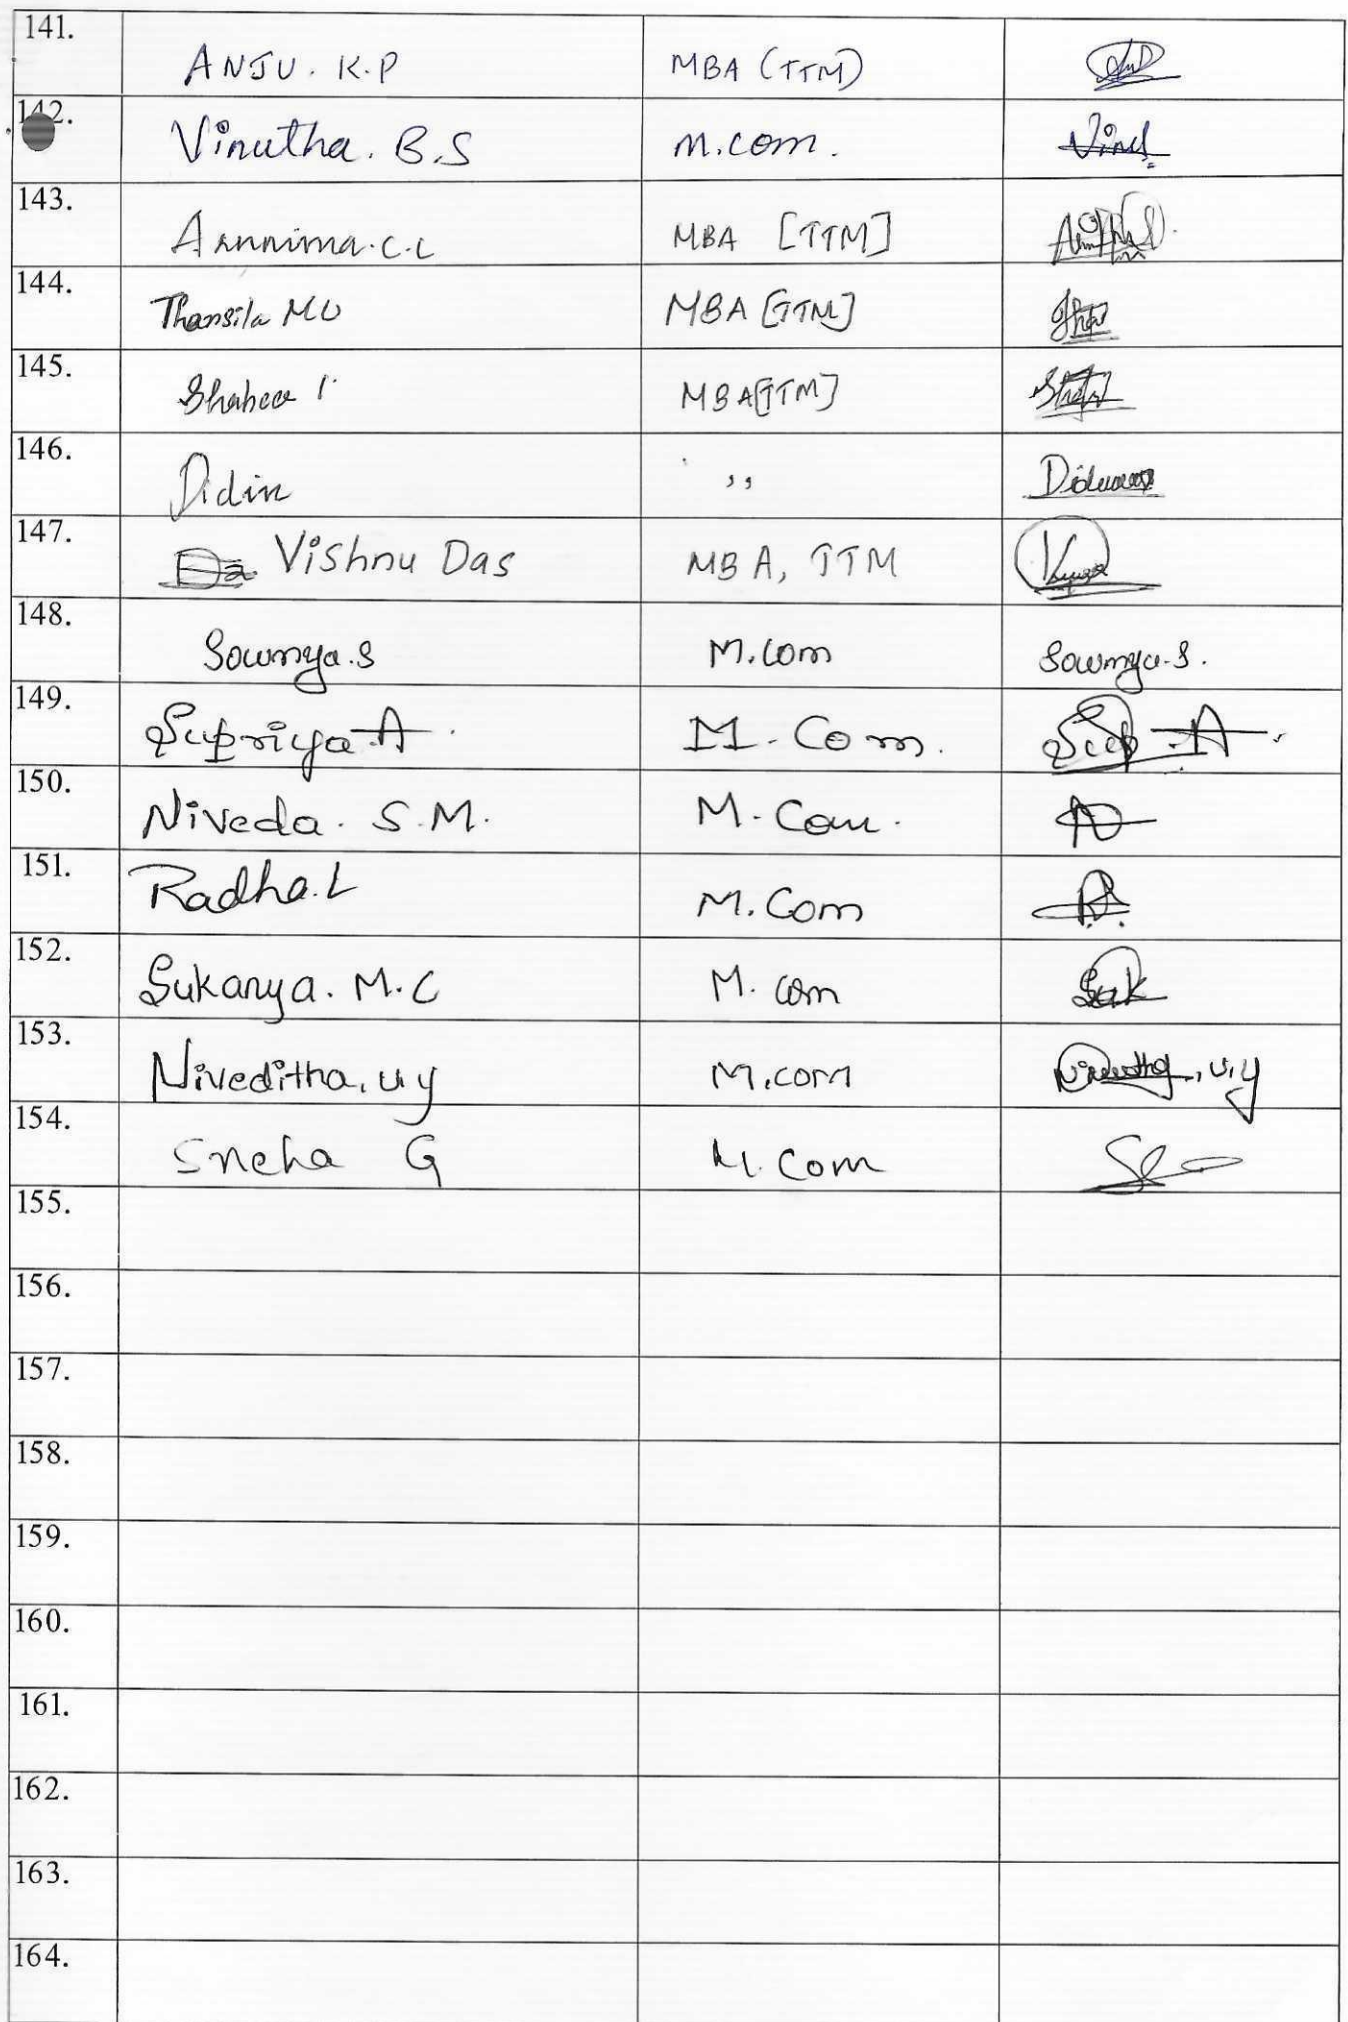 141. ANJU. K.P MBA (TTM)
142. Vinutha. B.S M.com.
143. Arunima.C.C MBA [TTM]
144. Thansila MU MBA [TTM]
145. MBA[TTM]
146. Didin ,,
147. Vishnu Das MBA, TTM
148. Sowmya.S M.com Sowmya.S.
149. Supriya.A. M.Com. Sup.A.
150. Niveda. S.M. M.Com.
151. Radha.L M.Com
152. Sukanya. M.C M.com Suk
153. Niveditha.u.y M.com
154. Sneha G M.Com
155.
156.
157.
158.
159.
160.
161.
162.
163.
164.